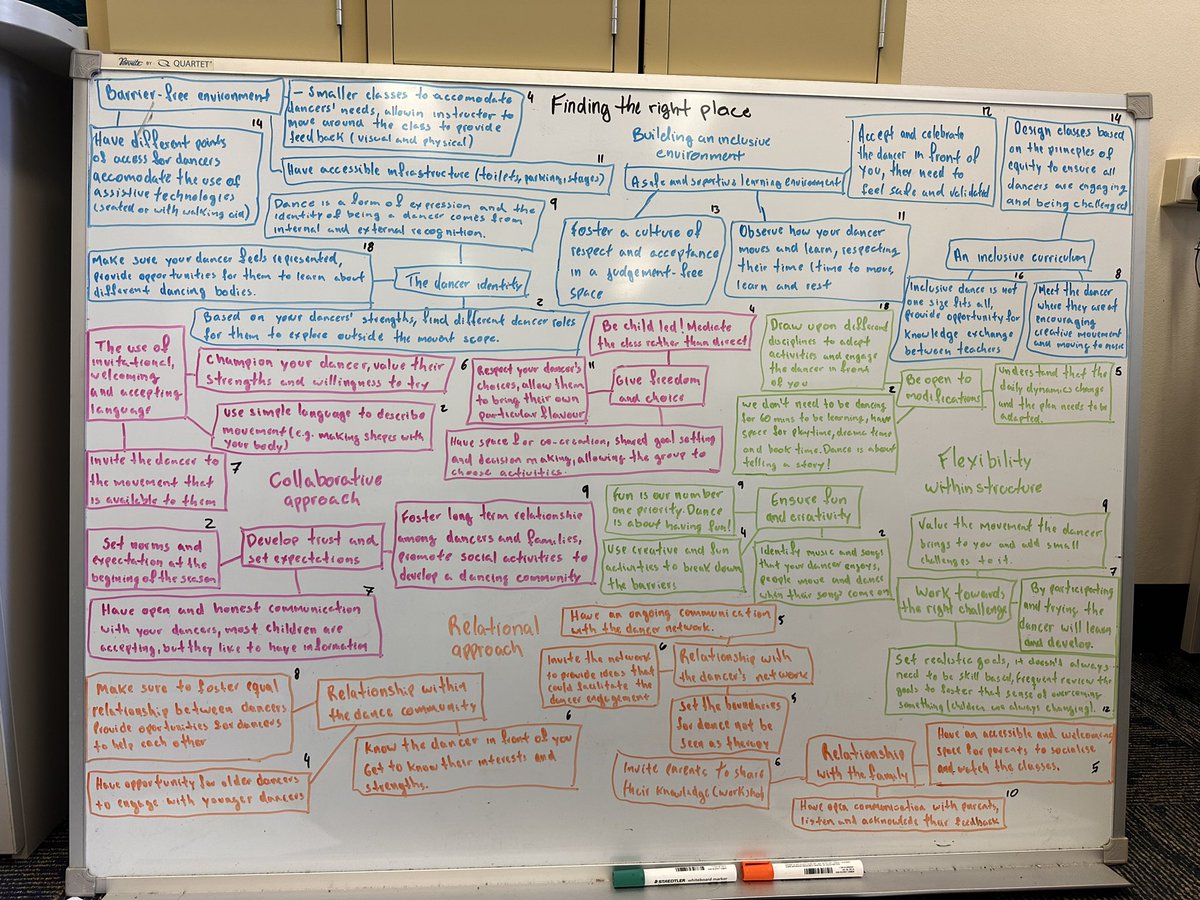 QUARTET
Finding the right place
Building an inclusive
environment
Barrier-free environment
14
Have different points
of access for dancers
accomodate the use of
assistive technologies
(seated or with walking aid)
4
- Smaller classes to accomodate
dancers' needs, allowin instructor to
move around the class to provide
feedback (visual and physical)
11
Have accessible infrastructure (toilets, parking, stages)
9
Dance is a form of expression and the
identity of being a dancer comes from
internal and external recognition.
18
Make sure your dancer feels represented,
provide opportunities for them to learn about
different dancing bodies.
The dancer identity
2
Based on your dancers' strengths, find different dancer roles
for them to explore outside the movent scope.
A safe and supportive learning environment
12
Accept and celebrate
the dancer in front of
you, they need to
feel safe and validated
13
Foster a culture of
respect and acceptance
in a judgement-free
space
11
Observe how your dancer
moves and learn, respecting
their time (time to move,
learn and rest
14
Design classes based
on the principles of
equity to ensure all
dancers are engaging
and being challenged
An inclusive curriculum
16
Inclusive dance is not
one size fits all,
provide opportunity for
knowledge exchange
between teachers
8
Meet the dancer
where they are at
encouraging
creative movement
and moving to music
The use of
invitational,
welcoming
and accepting
language
6
Champion your dancer, value their
strengths and willingness to try
2
use simple language to describe
movement (e.g. making shapes with
your body)
7
Invite the dancer to
the movement that
is available to them
Collaborative
approach
4
Be child led! Mediate
the class rather than direct
11
Respect your dancer's
choices, allow them
to bring their own
particular flavour
Give freedom
and choice
Have space for co-creation, shared goal setting
and decision making, allowing the group to
choose activities.
2
Set norms and
expectation at the
begining of the season
Develop trust and
set expectations
9
Foster long term relationship
among dancers and families,
promote social activities to
develop a dancing community
7
Have open and honest communication
with your dancers, most children are
accepting, but they like to have information
18
Draw upon different
disciplines to adapt
activities and engage
the dancer in front
of you
2
we don't need to be dancing
for 60 mins to be learning, have
space for playtime, drama time
and book time. Dance is about
telling a story!
Be open to
modifications
5
Understand that the
daily dynamics change
and the plan needs to be
adapted.
Flexibility
within structure
9
Fun is our number
one priority. Dance
is about having fun!
Ensure fun
and creativity
4
Use creative and fun
activities to break down
the barriers
2
Identify music and songs
that your dancer enjoys,
people move and dance
when their songs come on
9
Value the movement the dancer
brings to you and add small
challenges to it.
Work towards
the right challenge
7
By participating
and trying, the
dancer will learn
and develop.
Set realistic goals, it doesn't always
need to be skill based, frequent review the
goals to foster that sense of overcoming
something (children are always changing).
12
Relational
approach
8
Make sure to foster equal
relationship between dancers
Provide oportunities for dancers
to help each other
Relationship within
the dance community
4
Have opportunity for older dancers
to engage with younger dancers
6
Know the dancer in front of you
Get to know their interests and
strengths.
5
Have an ongoing communication
with the dancer network.
6
Invite the network
to provide ideas that
could facilitate the
dancer engagement
Relationship with
the dancer's network
5
Set the boundaries
for dance not be
seen as therapy
6
Invite parents to share
their knowledge (workshop
Relationship
with the family
Have an accessible and welcoming
space for parents to socialise
and watch the classes.
5
10
Have open communication with parents,
listen and acknowlede their feedback
STAEDTLER whiteboard marker